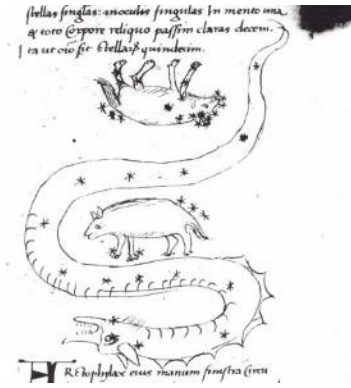 ſtellas ſinglas: inoculis ſingulas In mento una
toto Corpore reliquo paſſim claras decem.
Ita ut oīo ſit Stellaꝝ quindecim.
ARCtophilax eius manum ſiniſtra Circu